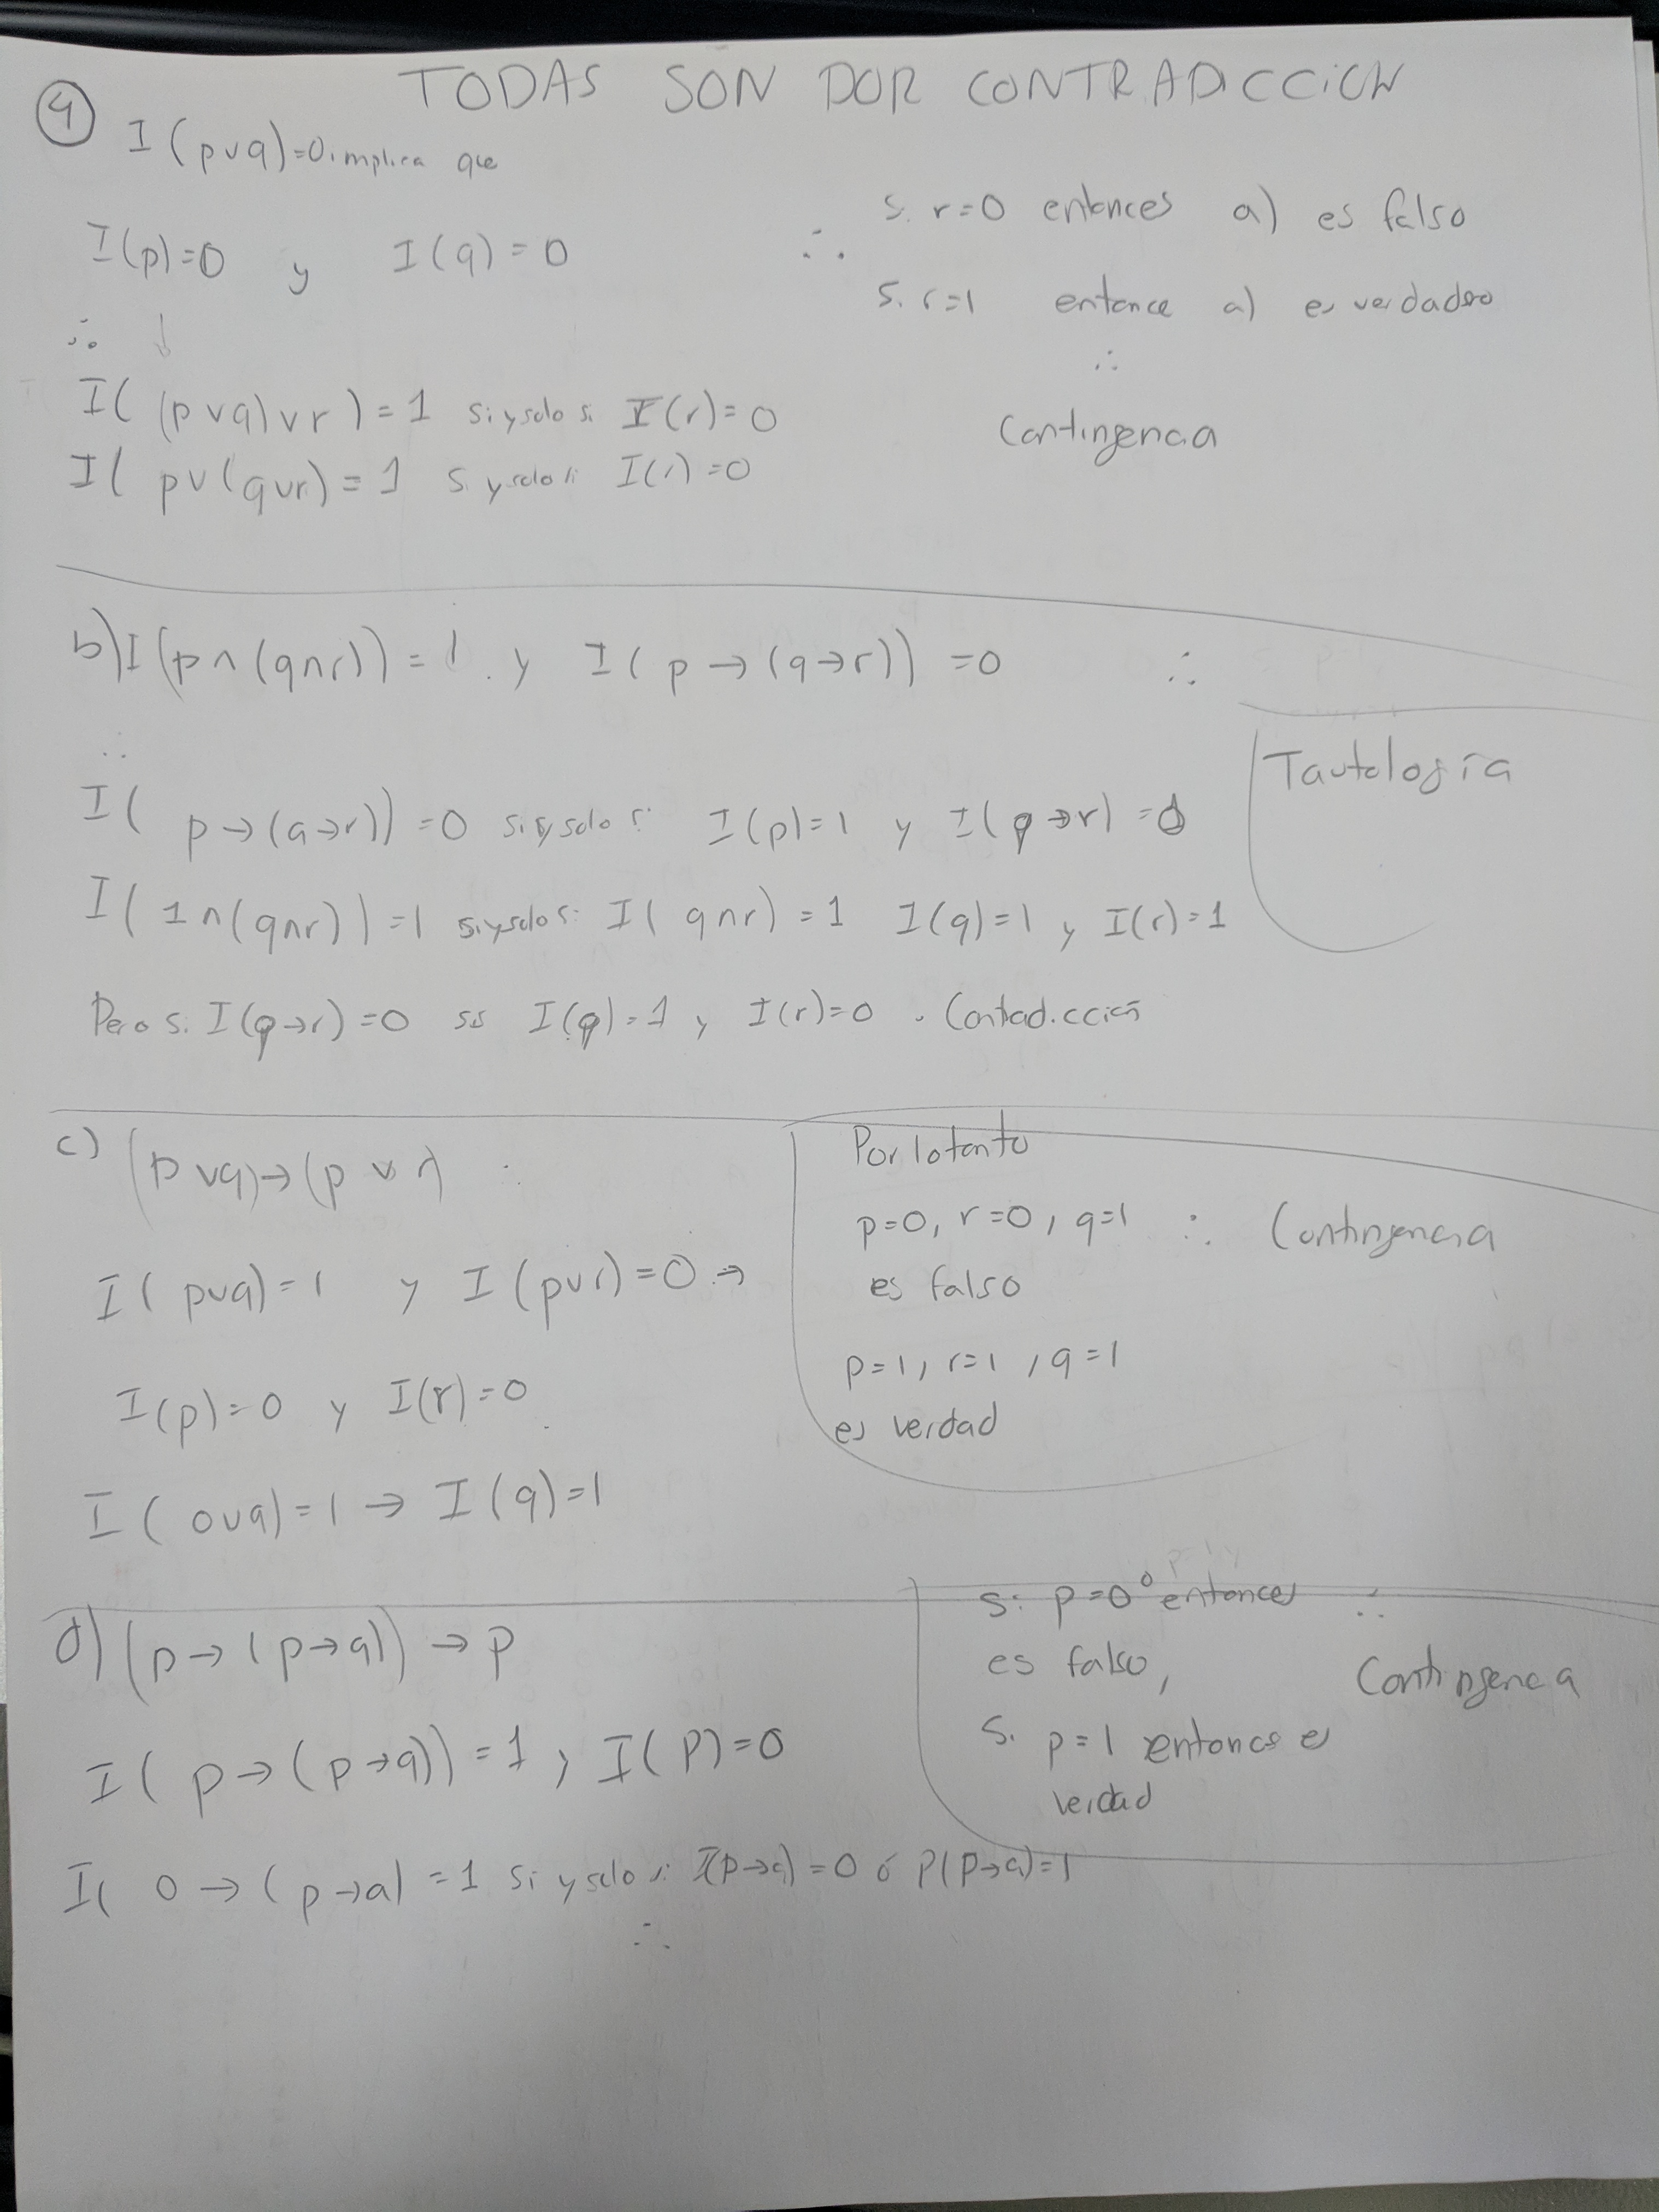 TODAS SON POR CONTRADICCIÓN
4
I(p∨q)=0 implica que
I(p)=0 y I(q)=0
∴ ↓
I((p∨q)∨r)=1 si y solo si I(r)=0
I(p∨(q∨r)=1 si y solo si I(r)=0
∴ si r=0 entonces a) es falso
si r=1 entonce a) es verdadero
∴
Contingencia
b) I(p∧(q∧r))=1 y I(p→(q→r))=0 ∴
∴
I(p→(q→r))=0 si y solo si I(p)=1 y I(q→r)=0
I(1∧(q∧r))=1 si y solo si I(q∧r)=1 I(q)=1 y I(r)=1
Pero si I(q→r)=0 ss I(q)=1 y I(r)=0 . Contradicción
Tautología
c) (p∨q)→(p∨r)
I(p∨q)=1 y I(p∨r)=0 →
I(p)=0 y I(r)=0
I(0∨q)=1→I(q)=1
Por lo tanto
p=0, r=0, q=1 ∴ Contingencia
es falso
p=1, r=1, q=1
es verdad
d) (p→(p→q))→p
I(p→(p→q))=1, I(p)=0
I(0→(p→q)=1 si y solo si I(p→q)=0 ó P(p→q)=1
∴
si p=0 entonces ∴
es falso, Contingencia
si p=1 entonces es
verdad